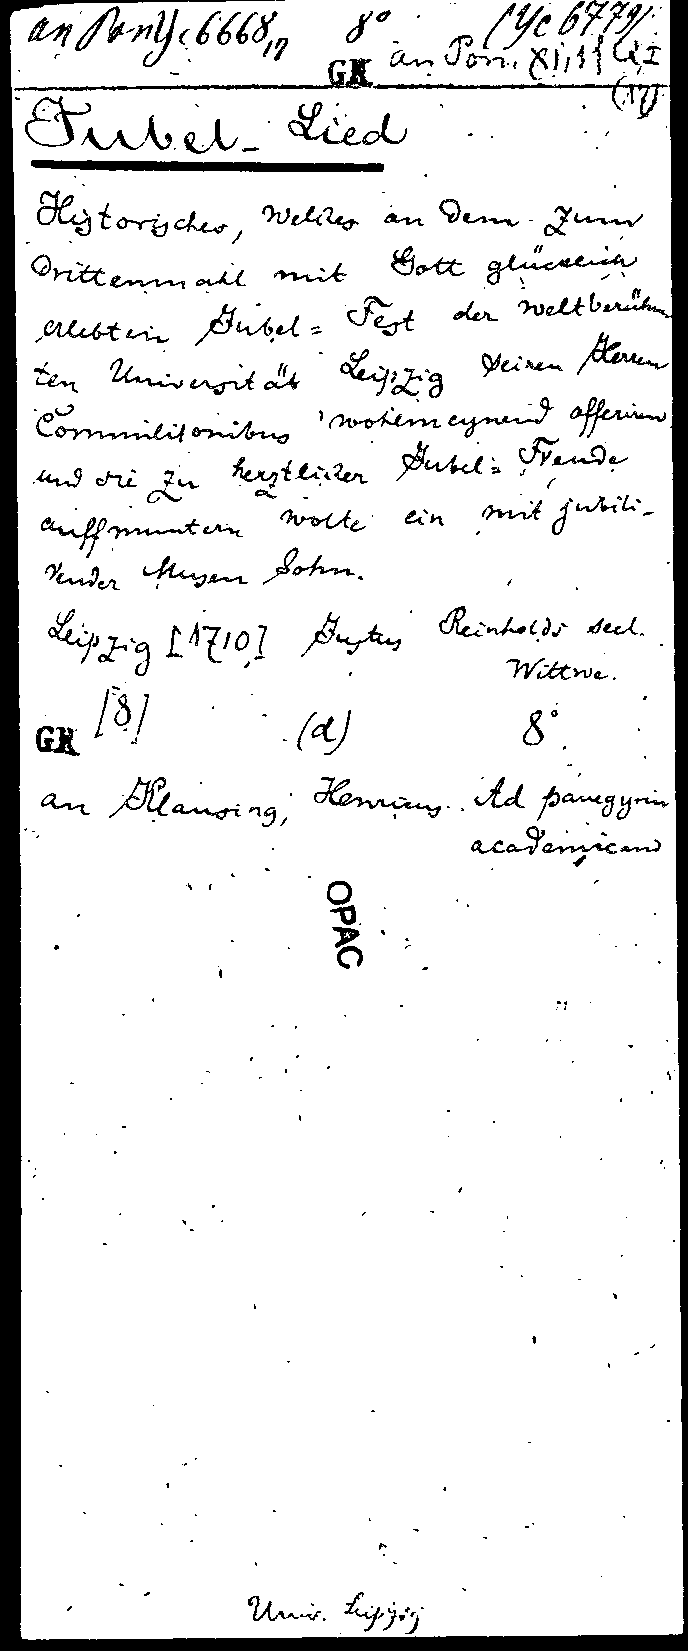 an Pon Yc 6668,17 8° (Yc 6779)
GK an Pon. XI,11
(17)
Jubel-Lied
Historisches, welches an dem zum
drittenmahl mit Gott glücklich
erlebten Jubel= Fest der weltberühm
ten Universität Leipzig seinen Herren
Commilitonibus wohlmeynend offeriren
und sie zu hertzlicher Jubel= Freude
auffmuntern wolte ein mit jubili-
render Musen Sohn.
Leipzig [1710] Justus Reinholds seel.
Wittwe.
GK [8] (d) 8°
an Klausing, Henricus. Ad panegyrin
academicam
OPAC
Univ. Leipzig